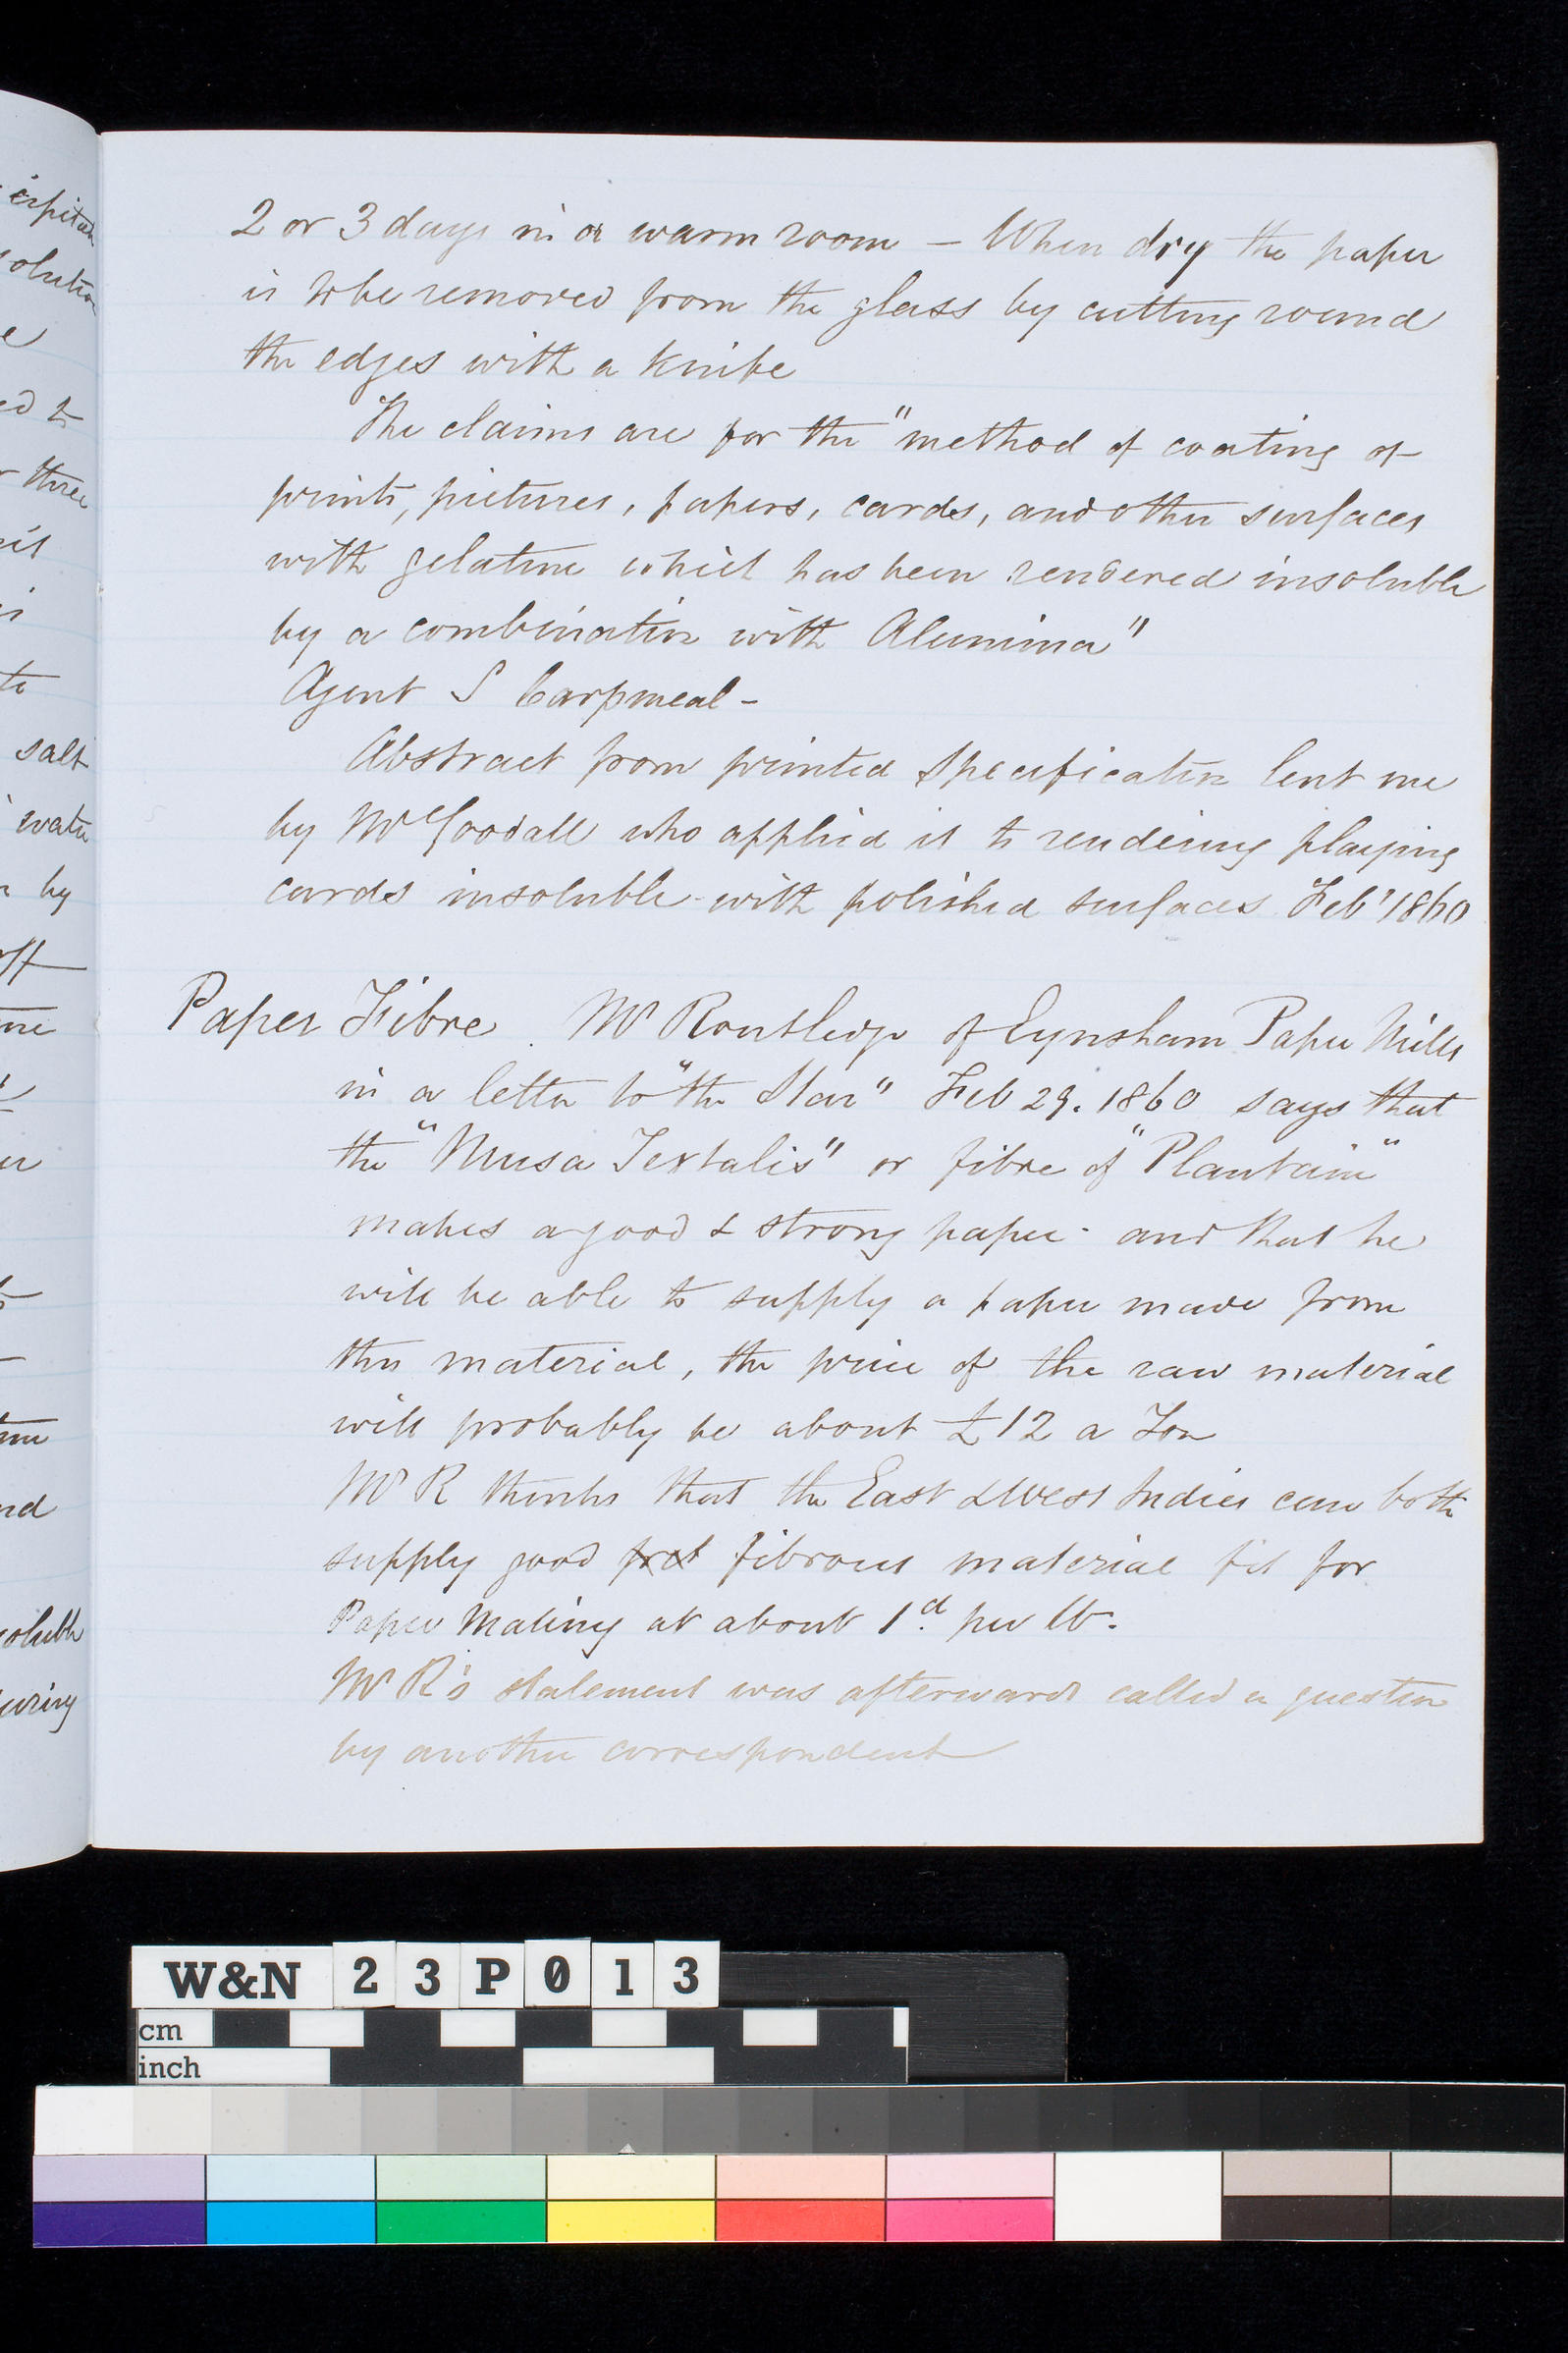 2 or 3 days in a warm room – When dry the paper
is to be removed from the glass by cutting round
the edges with a knife
The claims are for the "method of coating of
prints, pictures, papers, cards, and other surfaces
with gelatine which has been rendered insoluble
by a combination with Alumina"
Agent S Carpmeal –
Abstract from printed Specification lent me
by Mr Goodall who applied it to rendering playing
cards insoluble - with polished surfaces Feby 1860
Paper Fibre. Mr Routledge of Eynsham Paper Mills
in a letter to "the Star" Feb 29. 1860 says that
the "Musa Textalis" or fibre of "Plantain"
makes a good & strong paper - and that he
will be able to supply a paper made from
this material, the price of the raw material
will probably be about £12 a Ton
Mr R thinks that the East & West Indies can both
supply good fibrous material fit for
Paper Making at about 1d. per lb.
Mr R's statement was afterwards called in question
by another correspondent
solution
e
ed to
three
to
salt
water
by
off
er
nd
W&N 23P013
cm
inch